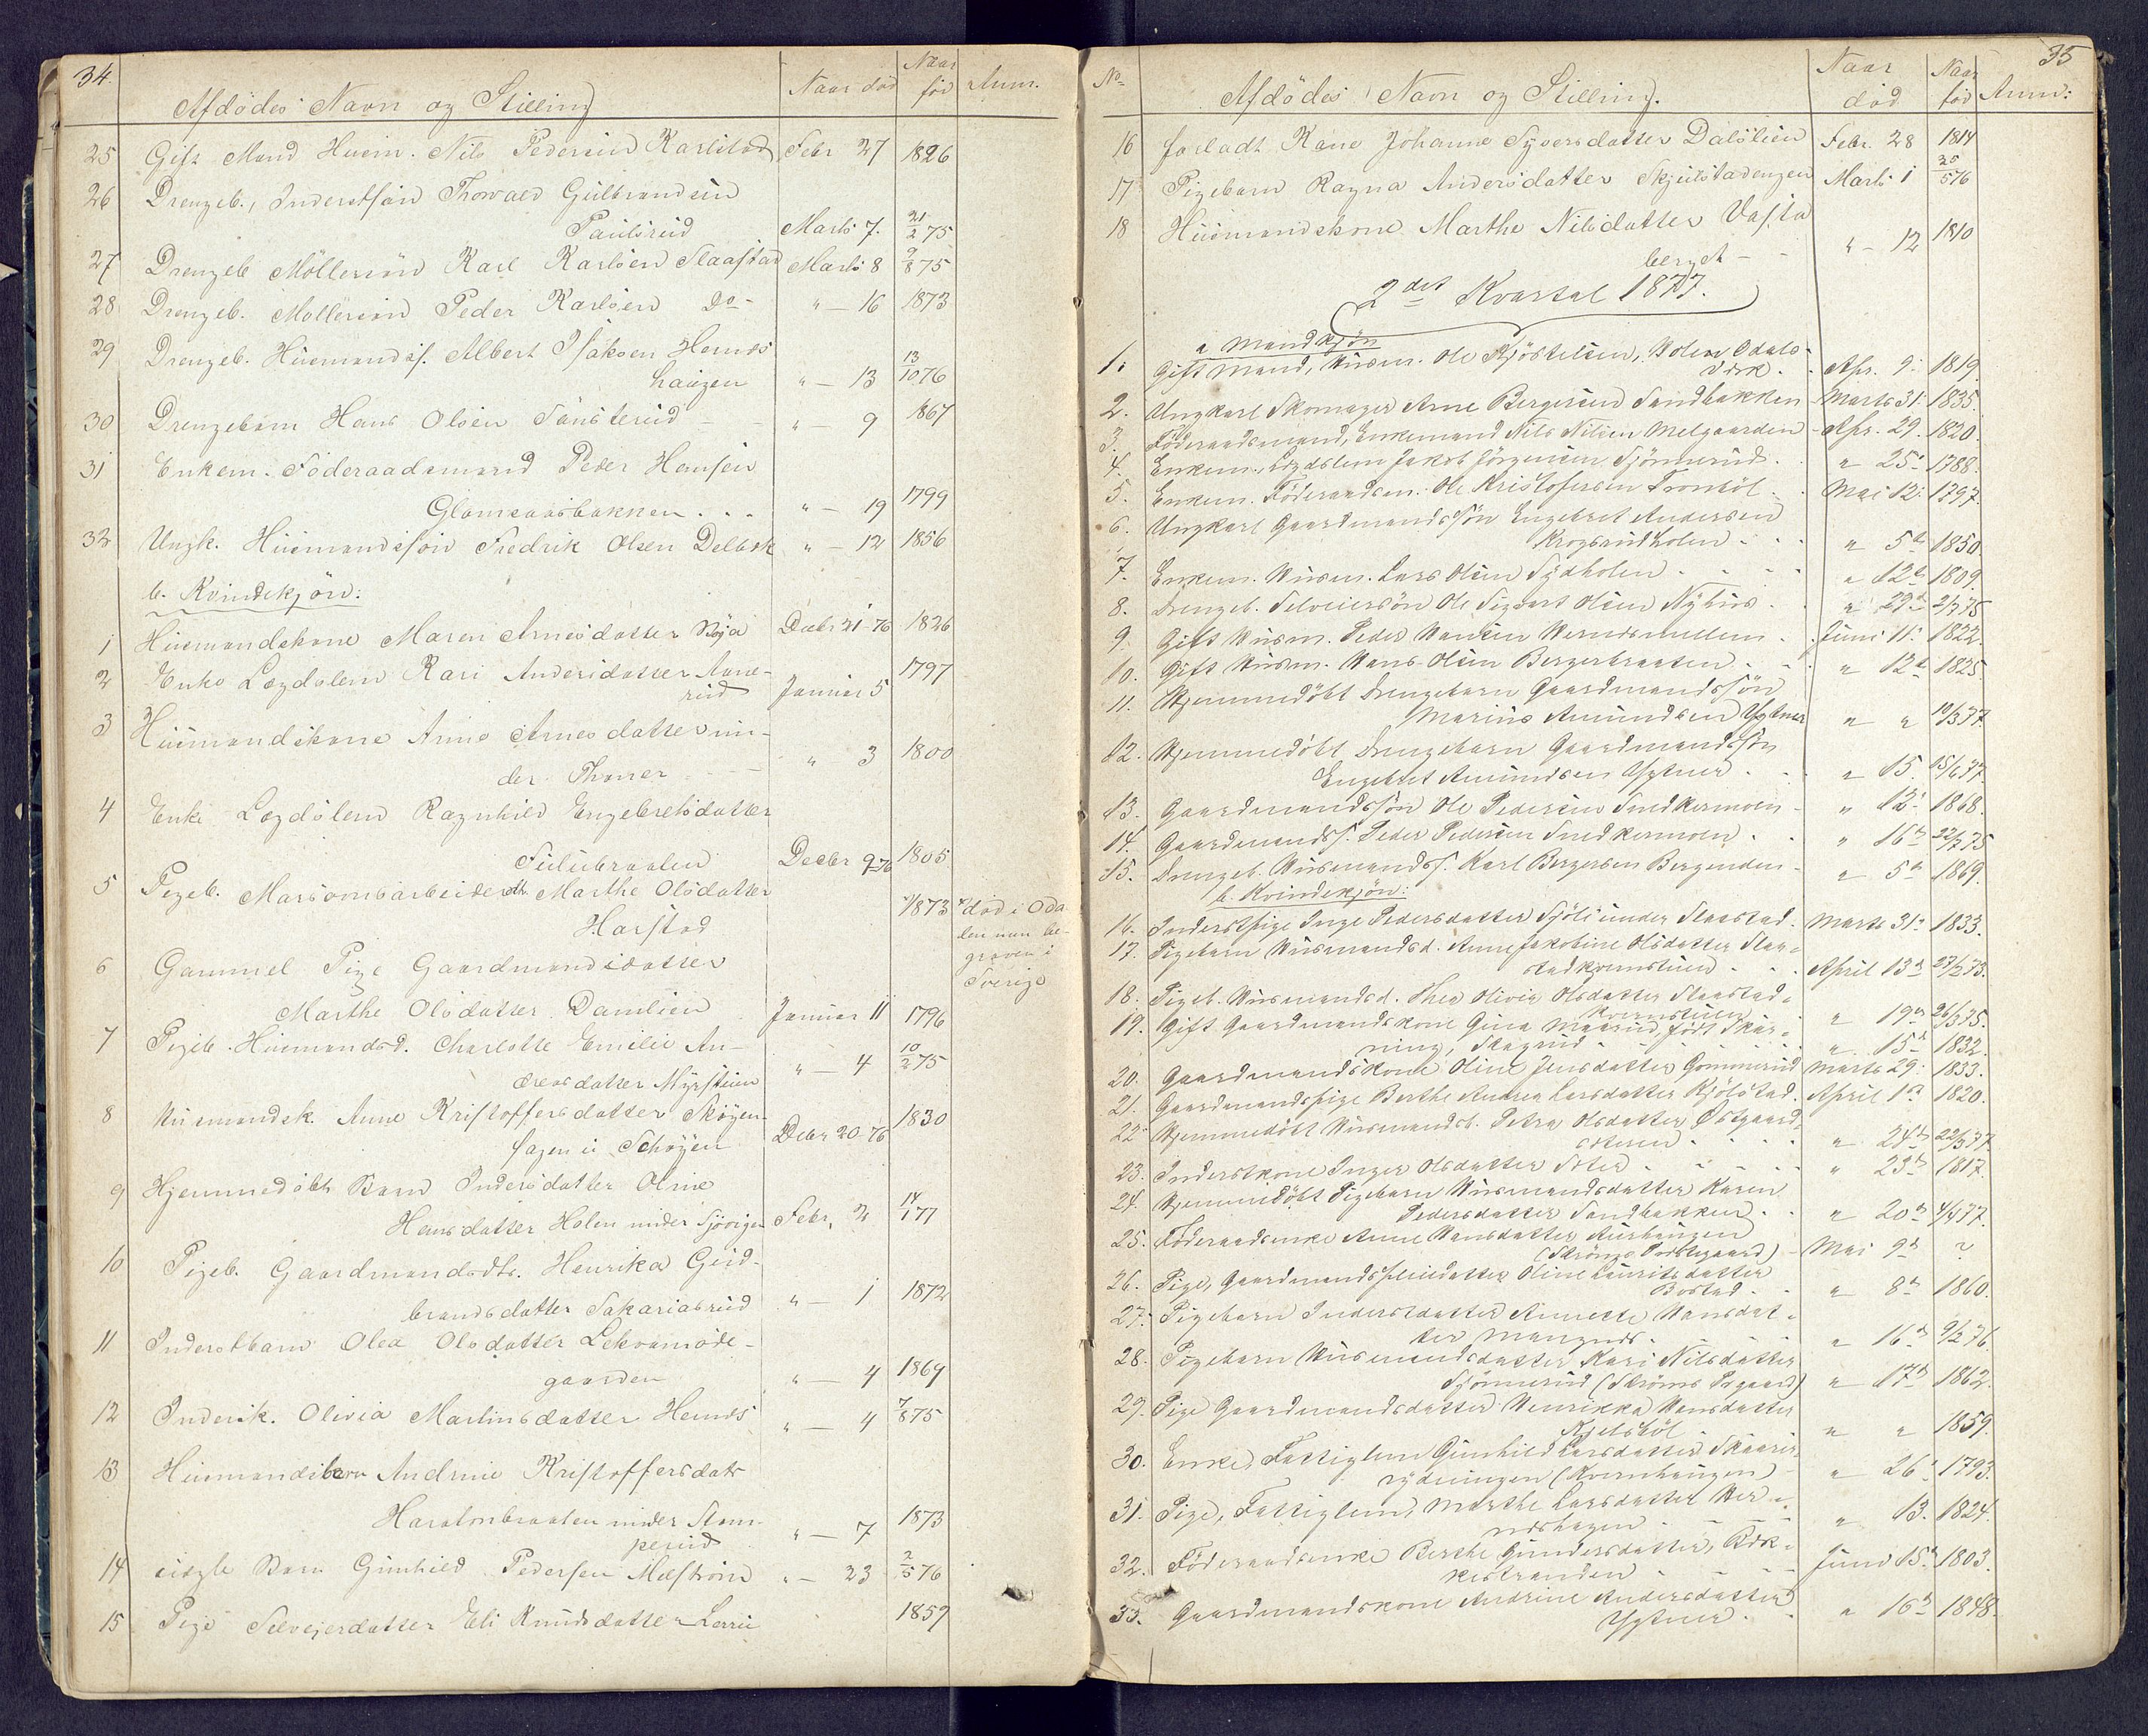 34.
Afdödes Navn og Stilling
Naar död
Naar fød
Anm.
25 Gift Mand Huusm. Nils Pedersen Karlstad Febr 27 1826
26 Drengeb., Inderstsøn Thorvald Gulbrandsen
Paulsrud Marts 7. 21/2 75
27 Drengeb Møllersøn Karl Karlsen Slaastad Marts 8 9/8 75
28 Drengeb. Møllersøn Peder Karlsen Do - " - 16 1873
29 Drengeb. Huusmands. Albert Isaksen Hernes
haugen " - 13 13/10 76
30 Drengebarn Hans Olsen Sønsterud - - " - 9 1867
31 Enkem. Føderaadsmand Peder Hansen
Glomsaasbakken . . . " - 19 1799
32 Ungk. Huusmandssøn Fredrik Olsen Delbæk " - 12 1856
b. Kvindekjøn:
1 Huusmandskone Maren Arnesdatter Böja Decbr 21-76 1826
2 Enke Lægdslem Kari Andersdatter Aane-
rud Januar 5 1797
3 Huusmandskone Anne Arnesdatter un-
der Thorer - - " 3 1800
4 Enke Lægdslem Ragnhild Engebretsdatter
Sulubraaten Decbr 9-76 1805
5 Pigeb. Marsomsarbeiderdtr. Marthe Olsdatter
Harstad 1873 død i Oda-
len men be-
graven i
Sverige
6 Gammel Pige Gaardmandsdatter
Marthe Olsdatter Damlien Januar 11 1796
7 Pigeb. Huusmandsd. Charlotte Emilie An-
dreasdatter Myrstuen " - 4 10/2 75
8 Huusmandsk. Anne Kristoffersdatter Skøyen-
hagen u. Schøyen Decbr 20-76 1830
9 Hjemmedøbt Barn Indersdatter Oline
Hansdatter Holen under Sjøvigen Febr. 2 14/1 77
10 Pigeb. Gaardmandsdtr. Henrika Gud-
brandsdatter Sakariasrud " - 1 1872
11 Inderstbarn Olea Olsdatter Lekvamøde-
gaarden " - 4 1869
12 Inderstk. Olivia Martinsdatter Hernes " - 4 7/8 75
13 Huusmandsbarn Andrine Kristoffersdatr
Haratonbraaten under Stom-
perud " - 7 1873
14 uægte Barn Gunhild Pedersen Mostrøm " - 23 2/5 76
15 Pige Selvejerdatter Eli Knudsdatter Lerrie 1859
35
No
Afdödes Navn og Stilling.
Naar död
Naar fød
Anm:
16 forladt Kone Johanne Syversdatter Dalslien Febr. 28 1814
17 Pigebarn Ragna Andersdatter Skjulstadengen Marts 1 25/5 76
18 Huusmandskone Marthe Nilsdatter Vasta
berget - - " - 12 1810
2det Kvartal 1877.
a Mandkjøn
1. Gift Mand, Huusm. Ole Kjøstelsen, Holen Odals
Værk. - Apr. 9. 1819.
2. Ungkarl Skomager Arne Bergersen Sandbakken Marts 31. 1835.
3. Föderaadsmand, Enkemand Nils Nilsen Melgaarden - Apr. 29. 1820.
4. Enkem., Lægdslem Jakob Jørgensen Sjønnerud. " 25. 1788.
5. Enkem. Föderaadsm. Ole Kristofersen Tronböl. Mai 12. 1797.
6. Ungkarl Gaardmandssøn Engebret Andersen
Krogsrudholen. " 5. 1850.
7. Enkem. Huusm. Lars Olsen Sydholen. " 12. 1809.
8. Drengeb. Selveiersøn Ole Sigvart Olsen Nyhus. " 29. 2/7 75
9. Gift Huusm. Peder Hansen Hernesmellem. Juni 11. 1822.
10. Gift Huusm. Hans Olsen Bergerbraaten. " 12. 1825.
11. Hjemmedöbt Drengebarn Gaardmandssøn
Marius Amundsen Ygtner " " 10/3 77
12. Hjemmedöbt Drengebarn Gaardmandssøn
Engebret Amundsen Ygtner. " 15. 15/6 77
13. Gaardmandssøn Ole Pedersen Snedkermoen " 12. 1868.
14. Gaardmandss. Peder Pedersen Snedkermoen. " 16. 22/2 75
15. Drengeb. Huusmandss. Karl Bergersen Bergenden " 5. 1869.
b. Kvindekjøn:
16. Inderstpige Inge Pedersdatter Sjöli under Slaastad. Marts 31. 1833.
17. Pigebarn Huusmandsd. Anne Jakobine Olsdatter Slaa-
stadkvernstuen. April 13. 27/2 73.
18. Pigeb. Huusmandsd. Thea Olivia Olsdatter Slaastad-
kvernstuen. " 19. 26/3 75.
19. Gift Gaardmandskone Gina Maarud, født Skar-
ning, Slagrud " 15. 1832.
20. Gaardmandskone Oline Jensdatter Gommerud Marts 29. 1833.
21. Gaardmandspige Berthe Andrea Larsdatter Kjölstad. April 1. 1820.
22. Hjemmedöbt Huusmandsd. Petra Olsdatter Østgaard-
steren. " 24. 22/3 77.
23. Inderstkone Inger Olsdatter Sæter. " 23. 1817.
24. Hjemmedöbt Pigebarn Huusmandsdatter Karen
Pedersdatter Sandbakken. " 20. 4/4 77.
25. Föderaadsenke Anne Hansdatter Aurhaugen
(Strøms Præstegaard) - Mai 9. ?
26. Pige, Gaardmandspleiedatter Oline Lauritsdatter
Bostad. " 8. 1860.
27. Pigebarn Inderstdatter Annette Hansdat-
ter Mangnes. " 16. 9/2 76.
28. Pigebarn Huusmandsdatter Kari Nilsdatter
Sjønnerud (Strøms Prgaard) " 17. 1862.
29. Pige Gaardmandsdatter Henrikka Hansdatter
Kjelsböl " " 1859.
30. Enke, Fattiglem Gunhild Larsdatter Skaarer-
rydningen (Kvernhaugen) " 26. 1793.
31. Pige, Fattiglem, Marthe Larsdatter Her-
neshagen " 13. 1824.
32. Föderaadsenke Berthe Gundersdatter, Bæk-
kestranden Juni 15. 1803.
33. Gaardmandskone Andrine Andersdatter
Ygtner. " 16. 1848.